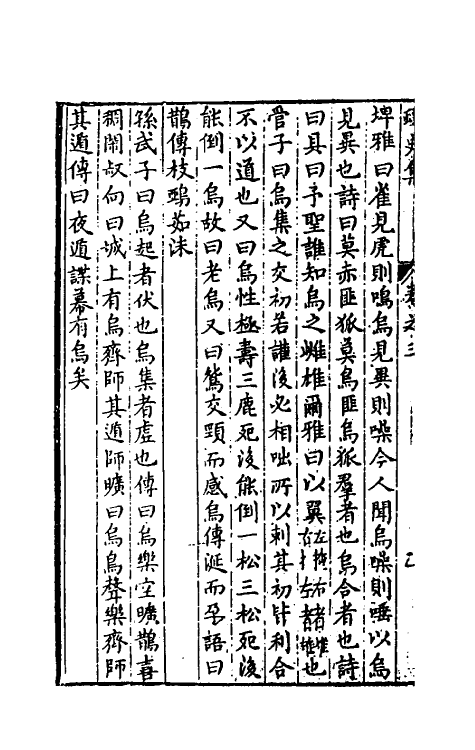 埤雅曰雀見虎則鳴烏見異則噪今人聞烏噪則唾以烏
見異也詩曰莫赤匪狐莫烏匪烏狐羣者也烏合者也詩
曰具曰予聖誰知烏之雌雄爾雅曰以翼右掩左雄左掩右雌也
管子曰烏集之交初若讙後必相咄所以刺其初皆利合
不以道也又曰烏性極壽三鹿死後能倒一松三松死後
能倒一烏故曰老烏又曰鶩交頸而感烏傳涎而孕語曰
鵲傳枝鵶茹沫
孫武子曰烏起者伏也烏集者虛也傳曰烏樂空曠鵲喜
稠閙叔向曰城上有烏齊師其遁師曠曰烏烏聲樂齊師
其遁傳曰夜遁諜幕有烏矣